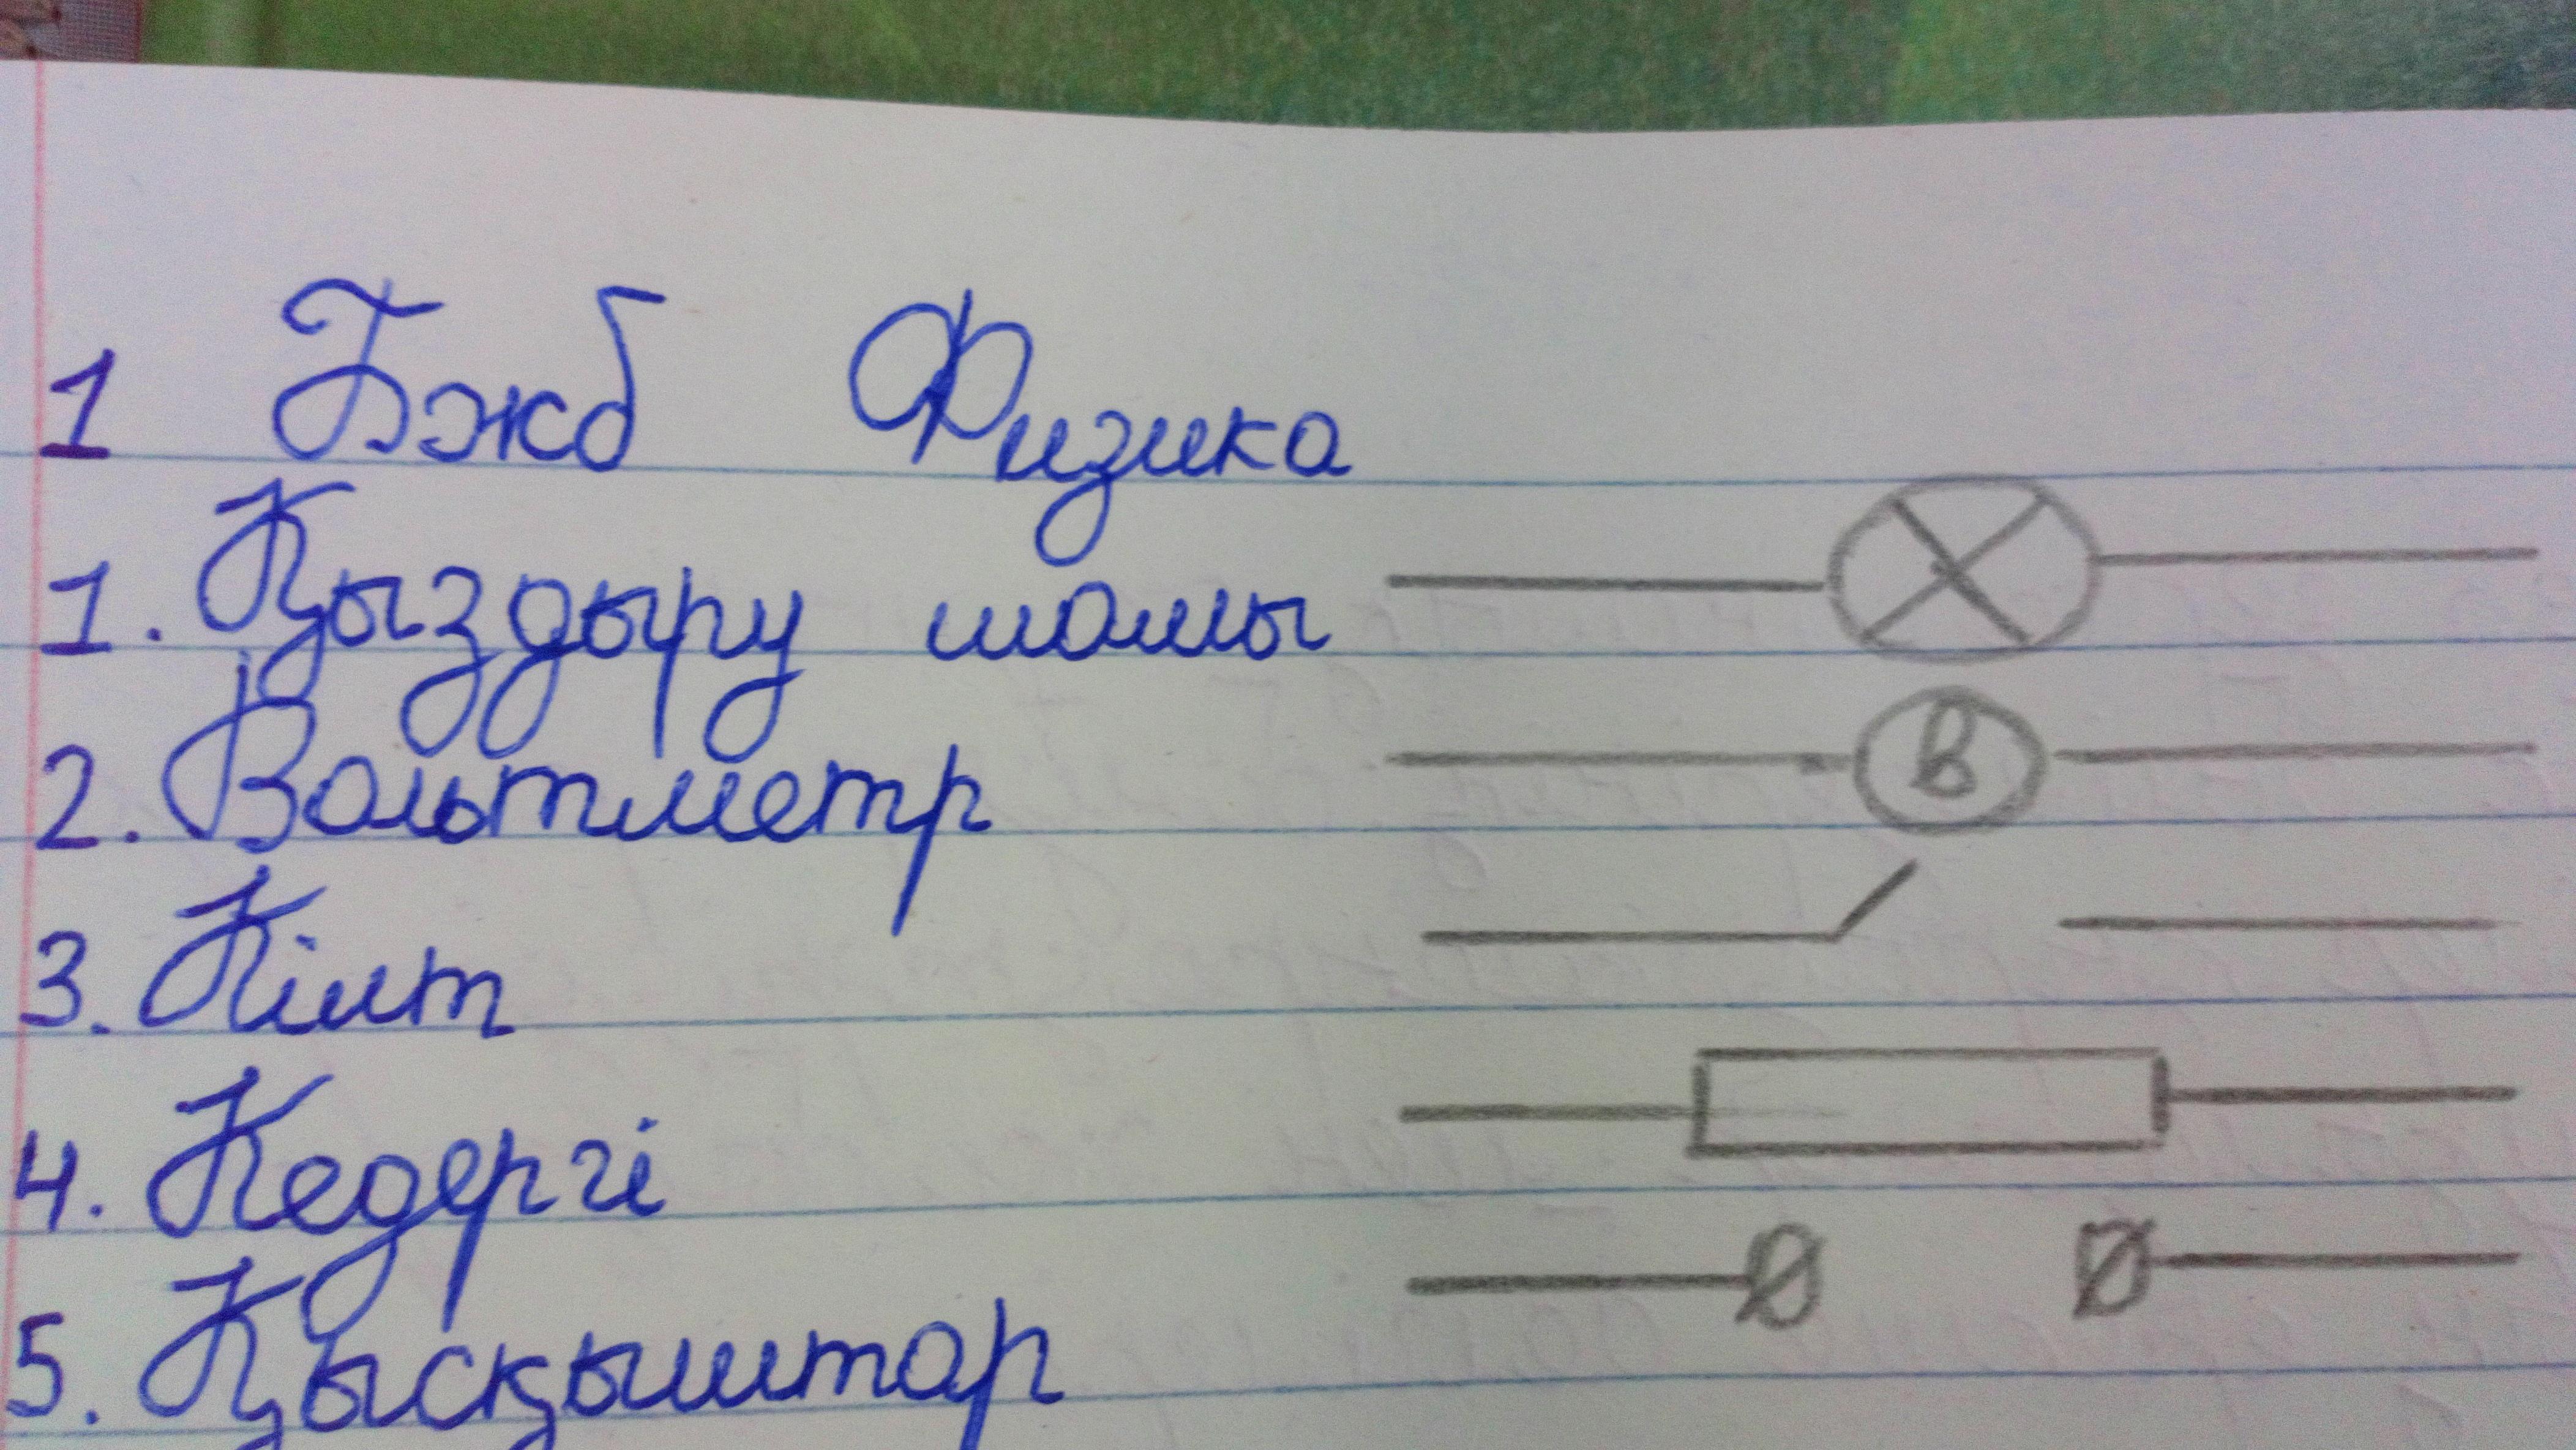 1 Бжб Физика
1. Қыздыру шамы
2. Вольтметр В
3. Кілт
4. Кедергі
5. Қысқыштар